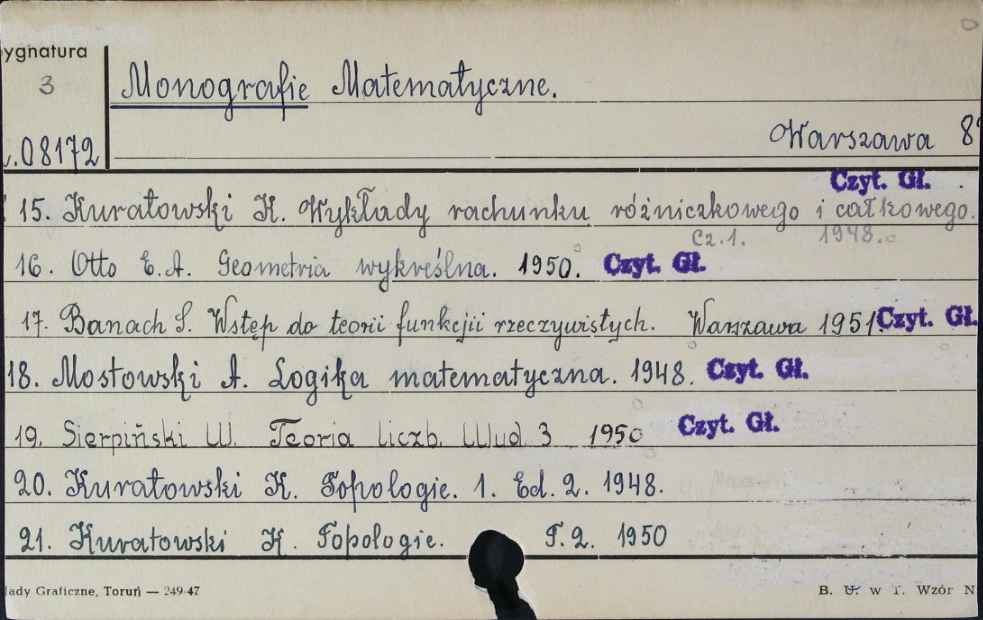 ygnatura
3
Monografie Matematyczne.
.08172
Warszawa 8
Czyt. Gł.
15. Kuratowski K. Wykłady rachunku różniczkowego i całkowego.
Cz.1. 1948.
16. Otto E.A. Geometria wykreślna. 1950. Czyt. Gł.
17. Banach S. Wstęp do teorii funkcji rzeczywistych. Warszawa 1951 Czyt. Gł.
18. Mostowski A. Logika matematyczna. 1948. Czyt. Gł.
19. Sierpiński W. Teoria liczb. Wyd 3 1950 Czyt. Gł.
20. Kuratowski K. Topologie. 1. Ed. 2. 1948.
21. Kuratowski K. Topologie. T. 2. 1950
łady Graficzne, Toruń — 249-47
B. U. w T. Wzór N